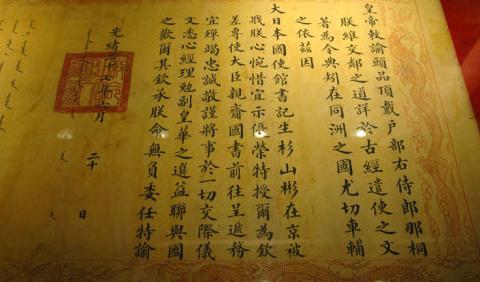 皇帝敕諭頭品頂戴戶部右侍郎那桐
朕維文鄰之道詳於古經遣使之文
著為令典矧在同洲之國尤切車輔
之依茲因
大日本國使館書記生杉山彬在京被
戕朕心惋惜宜示優榮特授爾為欽
差專使大臣親齎國書前往呈遞務
宜殫竭忠誠敬謹將事於一切交際儀
文悉心經理勉副皇華之選益聯與國
之歡爾其欽承朕命無負委任特諭
光緒二十七年六月
二十
日